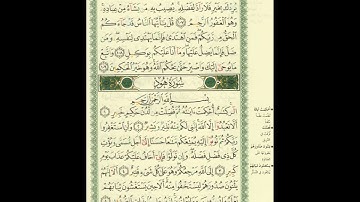 يُرِدْكَ بِخَيْرٍ فَلَا رَآدَّ لِفَضْلِهِۦ يُصِيبُ بِهِۦ مَن يَشَآءُ مِنْ عِبَادِهِۦ
وَهُوَ ٱلْغَفُورُ ٱلرَّحِيمُ ١٠٧ قُلْ يَٰٓأَيُّهَا ٱلنَّاسُ قَدْ جَآءَكُمُ
ٱلْحَقُّ مِن رَّبِّكُمْ فَمَنِ ٱهْتَدَىٰ فَإِنَّمَا يَهْتَدِى لِنَفْسِهِۦ وَمَن
ضَلَّ فَإِنَّمَا يَضِلُّ عَلَيْهَا وَمَآ أَنَا۠ عَلَيْكُم بِوَكِيلٍ ١٠٨ وَٱتَّبِعْ
مَا يُوحَىٰٓ إِلَيْكَ وَٱصْبِرْ حَتَّىٰ يَحْكُمَ ٱللَّهُ وَهُوَ خَيْرُ ٱلْحَٰكِمِينَ ١٠٩
سُورَةُ هُودٍ
بِسْمِ ٱللَّهِ ٱلرَّحْمَٰنِ ٱلرَّحِيمِ
الٓر كِتَٰبٌ أُحْكِمَتْ ءَايَٰتُهُۥ ثُمَّ فُصِّلَتْ مِن لَّدُنْ حَكِيمٍ خَبِيرٍ ١
أَلَّا تَعْبُدُوٓا۟ إِلَّا ٱللَّهَ إِنَّنِى لَكُم مِّنْهُ نَذِيرٌ وَبَشِيرٌ ٢ وَأَنِ ٱسْتَغْفِرُوا۟
رَبَّكُمْ ثُمَّ تُوبُوٓا۟ إِلَيْهِ يُمَتِّعْكُم مَّتَٰعًا حَسَنًا إِلَىٰٓ أَجَلٍ مُّسَمًّى وَيُؤْتِ
كُلَّ ذِى فَضْلٍ فَضْلَهُۥ وَإِن تَوَلَّوْا۟ فَإِنِّىٓ أَخَافُ عَلَيْكُمْ عَذَابَ يَوْمٍ
كَبِيرٍ ٣ إِلَى ٱللَّهِ مَرْجِعُكُمْ وَهُوَ عَلَىٰ كُلِّ شَىْءٍ قَدِيرٌ ٤ أَلَآ إِنَّهُمْ
يَثْنُونَ صُدُورَهُمْ لِيَسْتَخْفُوا۟ مِنْهُ أَلَا حِينَ يَسْتَغْشُونَ ثِيَابَهُمْ